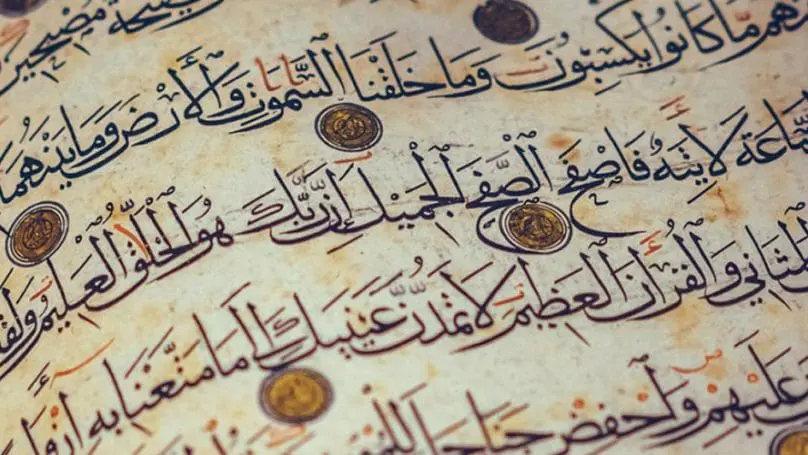 صيحة مصبحين
هم ما كانوا يكسبون وما خلقنا السموت والأرض وما بينهما
اعة لاتية فاصفح الصفح الجميل إن ربك هو الخلق العليم ولقد
لمثاني والقرآن العظيم لا تمدن عينيك إلى ما متعنا به أزوا
عليهم واخفض جناحك